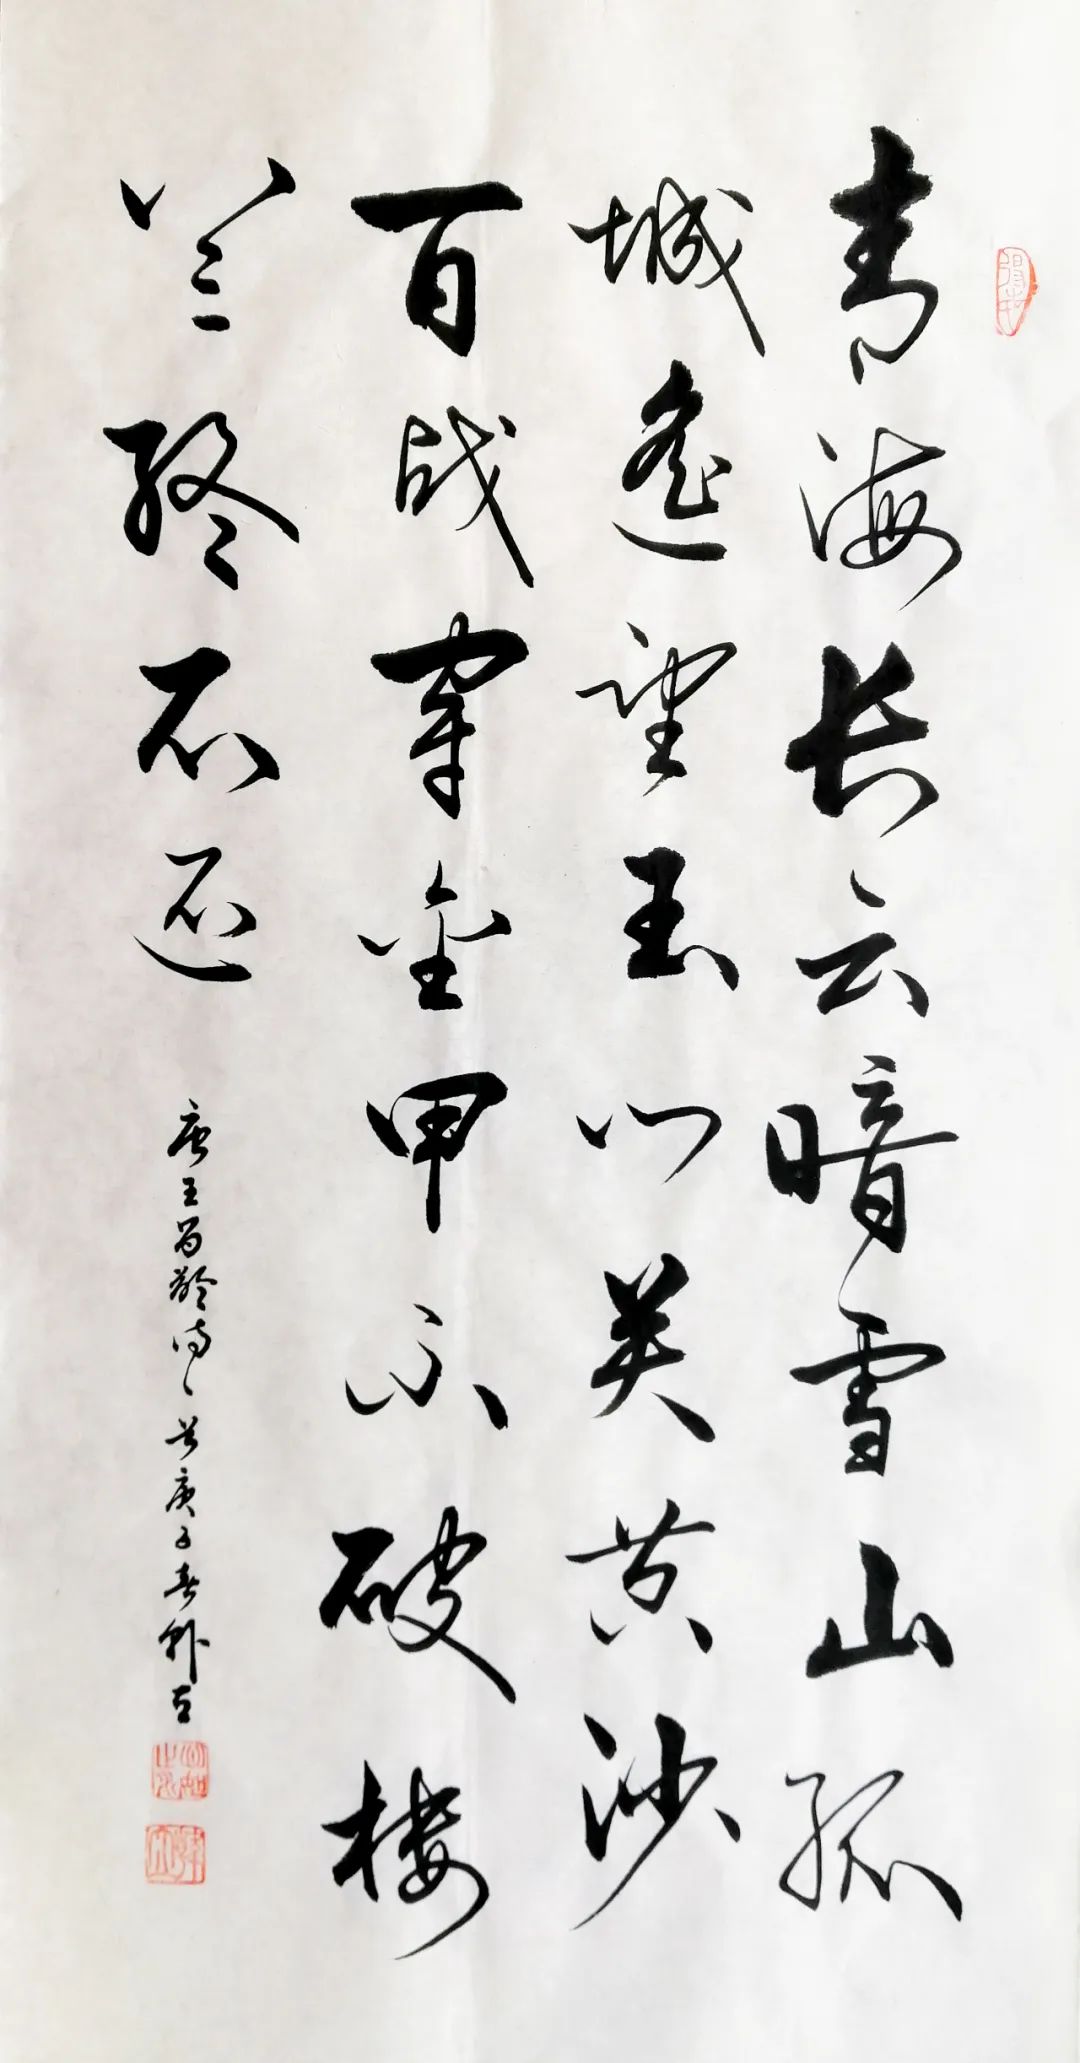 青海长云暗雪山孤
城遥望玉门关黄沙
百战穿金甲不破楼
兰终不还
唐王昌龄诗一首庚子春